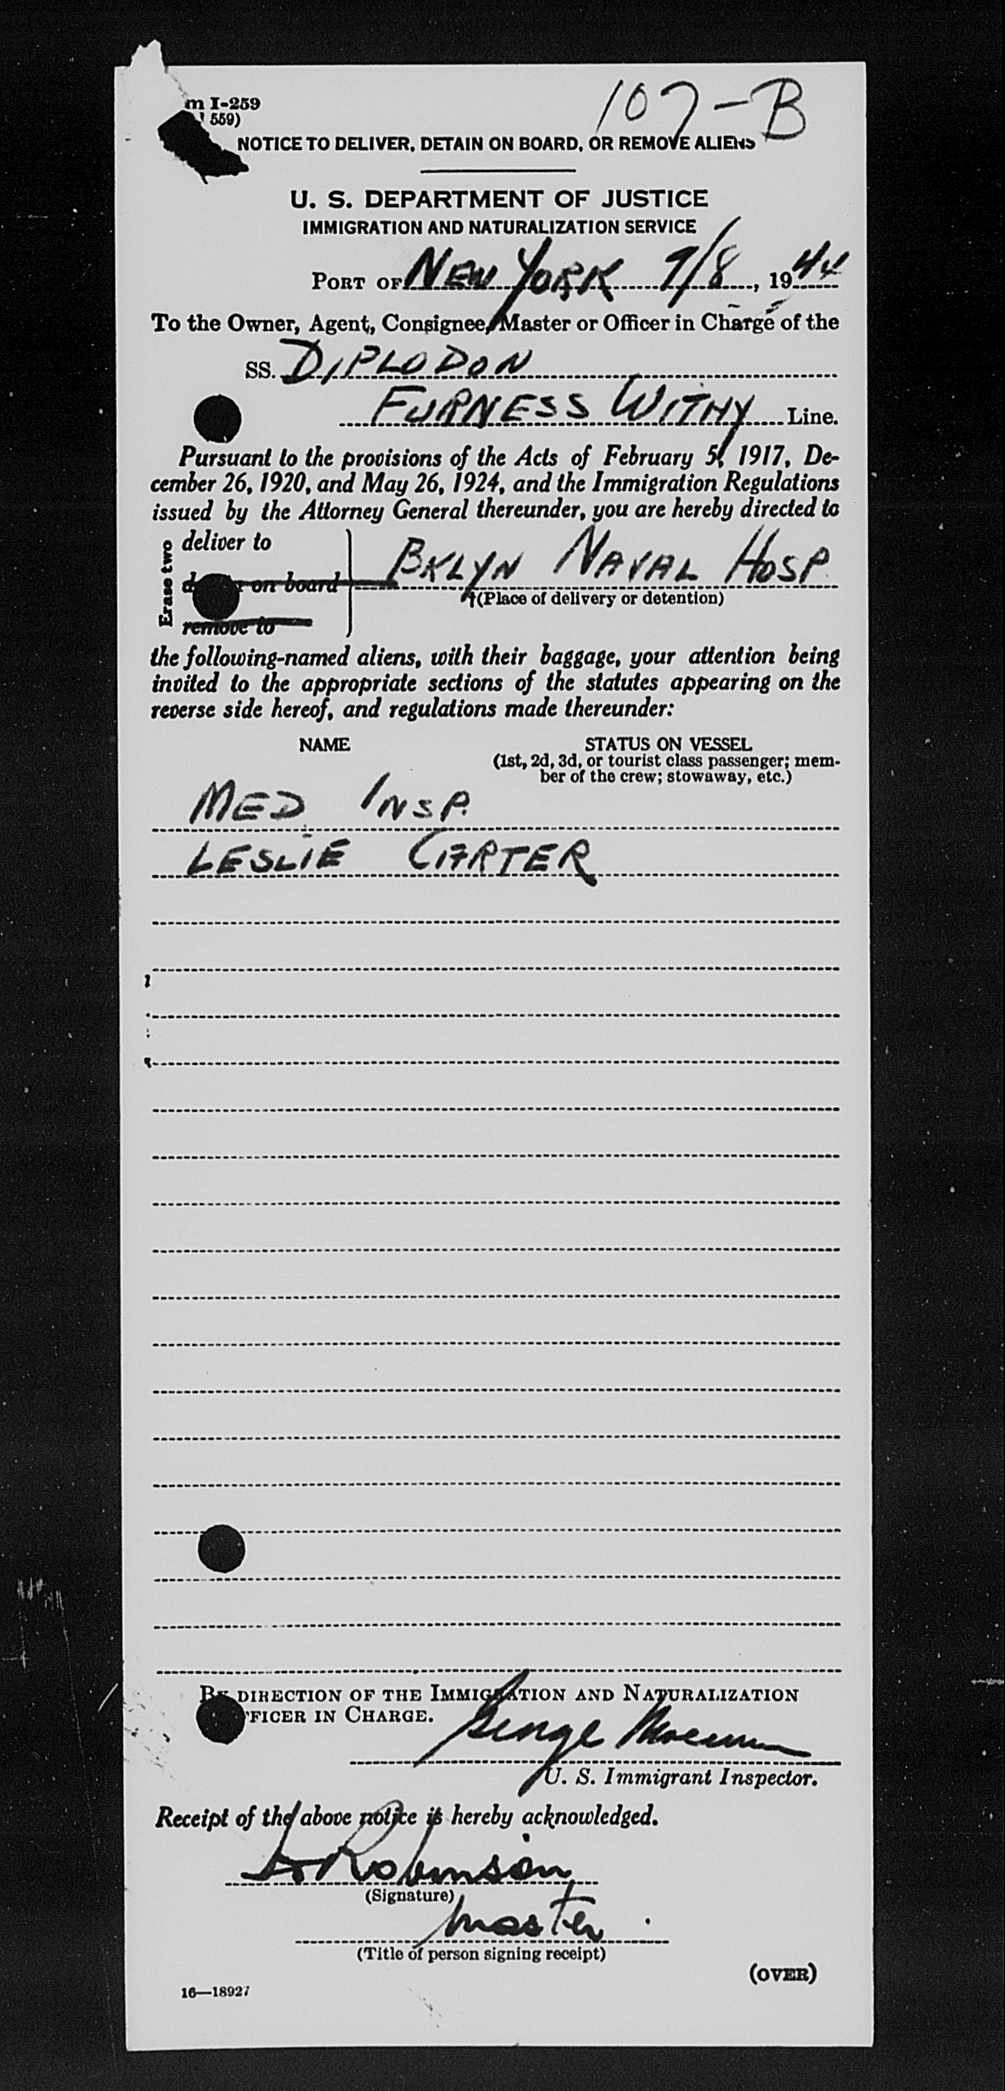 107-B
m I-259
559)
NOTICE TO DELIVER, DETAIN ON BOARD, OR REMOVE ALIENS
U. S. DEPARTMENT OF JUSTICE
IMMIGRATION AND NATURALIZATION SERVICE
PORT OF NEW YORK 9/8, 1944
To the Owner, Agent, Consignee, Master or Officer in Charge of the
SS. DIPLODON
FURNESS WITHY Line.
Pursuant to the provisions of the Acts of February 5, 1917, De-
cember 26, 1920, and May 26, 1924, and the Immigration Regulations
issued by the Attorney General thereunder, you are hereby directed to
Erase two
deliver to
on board
remove to
BKLYN NAVAL HOSP.
(Place of delivery or detention)
the following-named aliens, with their baggage, your attention being
invited to the appropriate sections of the statutes appearing on the
reverse side hereof, and regulations made thereunder:
NAME STATUS ON VESSEL
(1st, 2d, 3d, or tourist class passenger; mem-
ber of the crew; stowaway, etc.)
MED INSP.
LESLIE CARTER
BY DIRECTION OF THE IMMIGRATION AND NATURALIZATION
FICER IN CHARGE.
George
U. S. Immigrant Inspector.
Receipt of the above notice is hereby acknowledged.
Robinson
(Signature)
Master.
(Title of person signing receipt)
(OVER)
16—18927